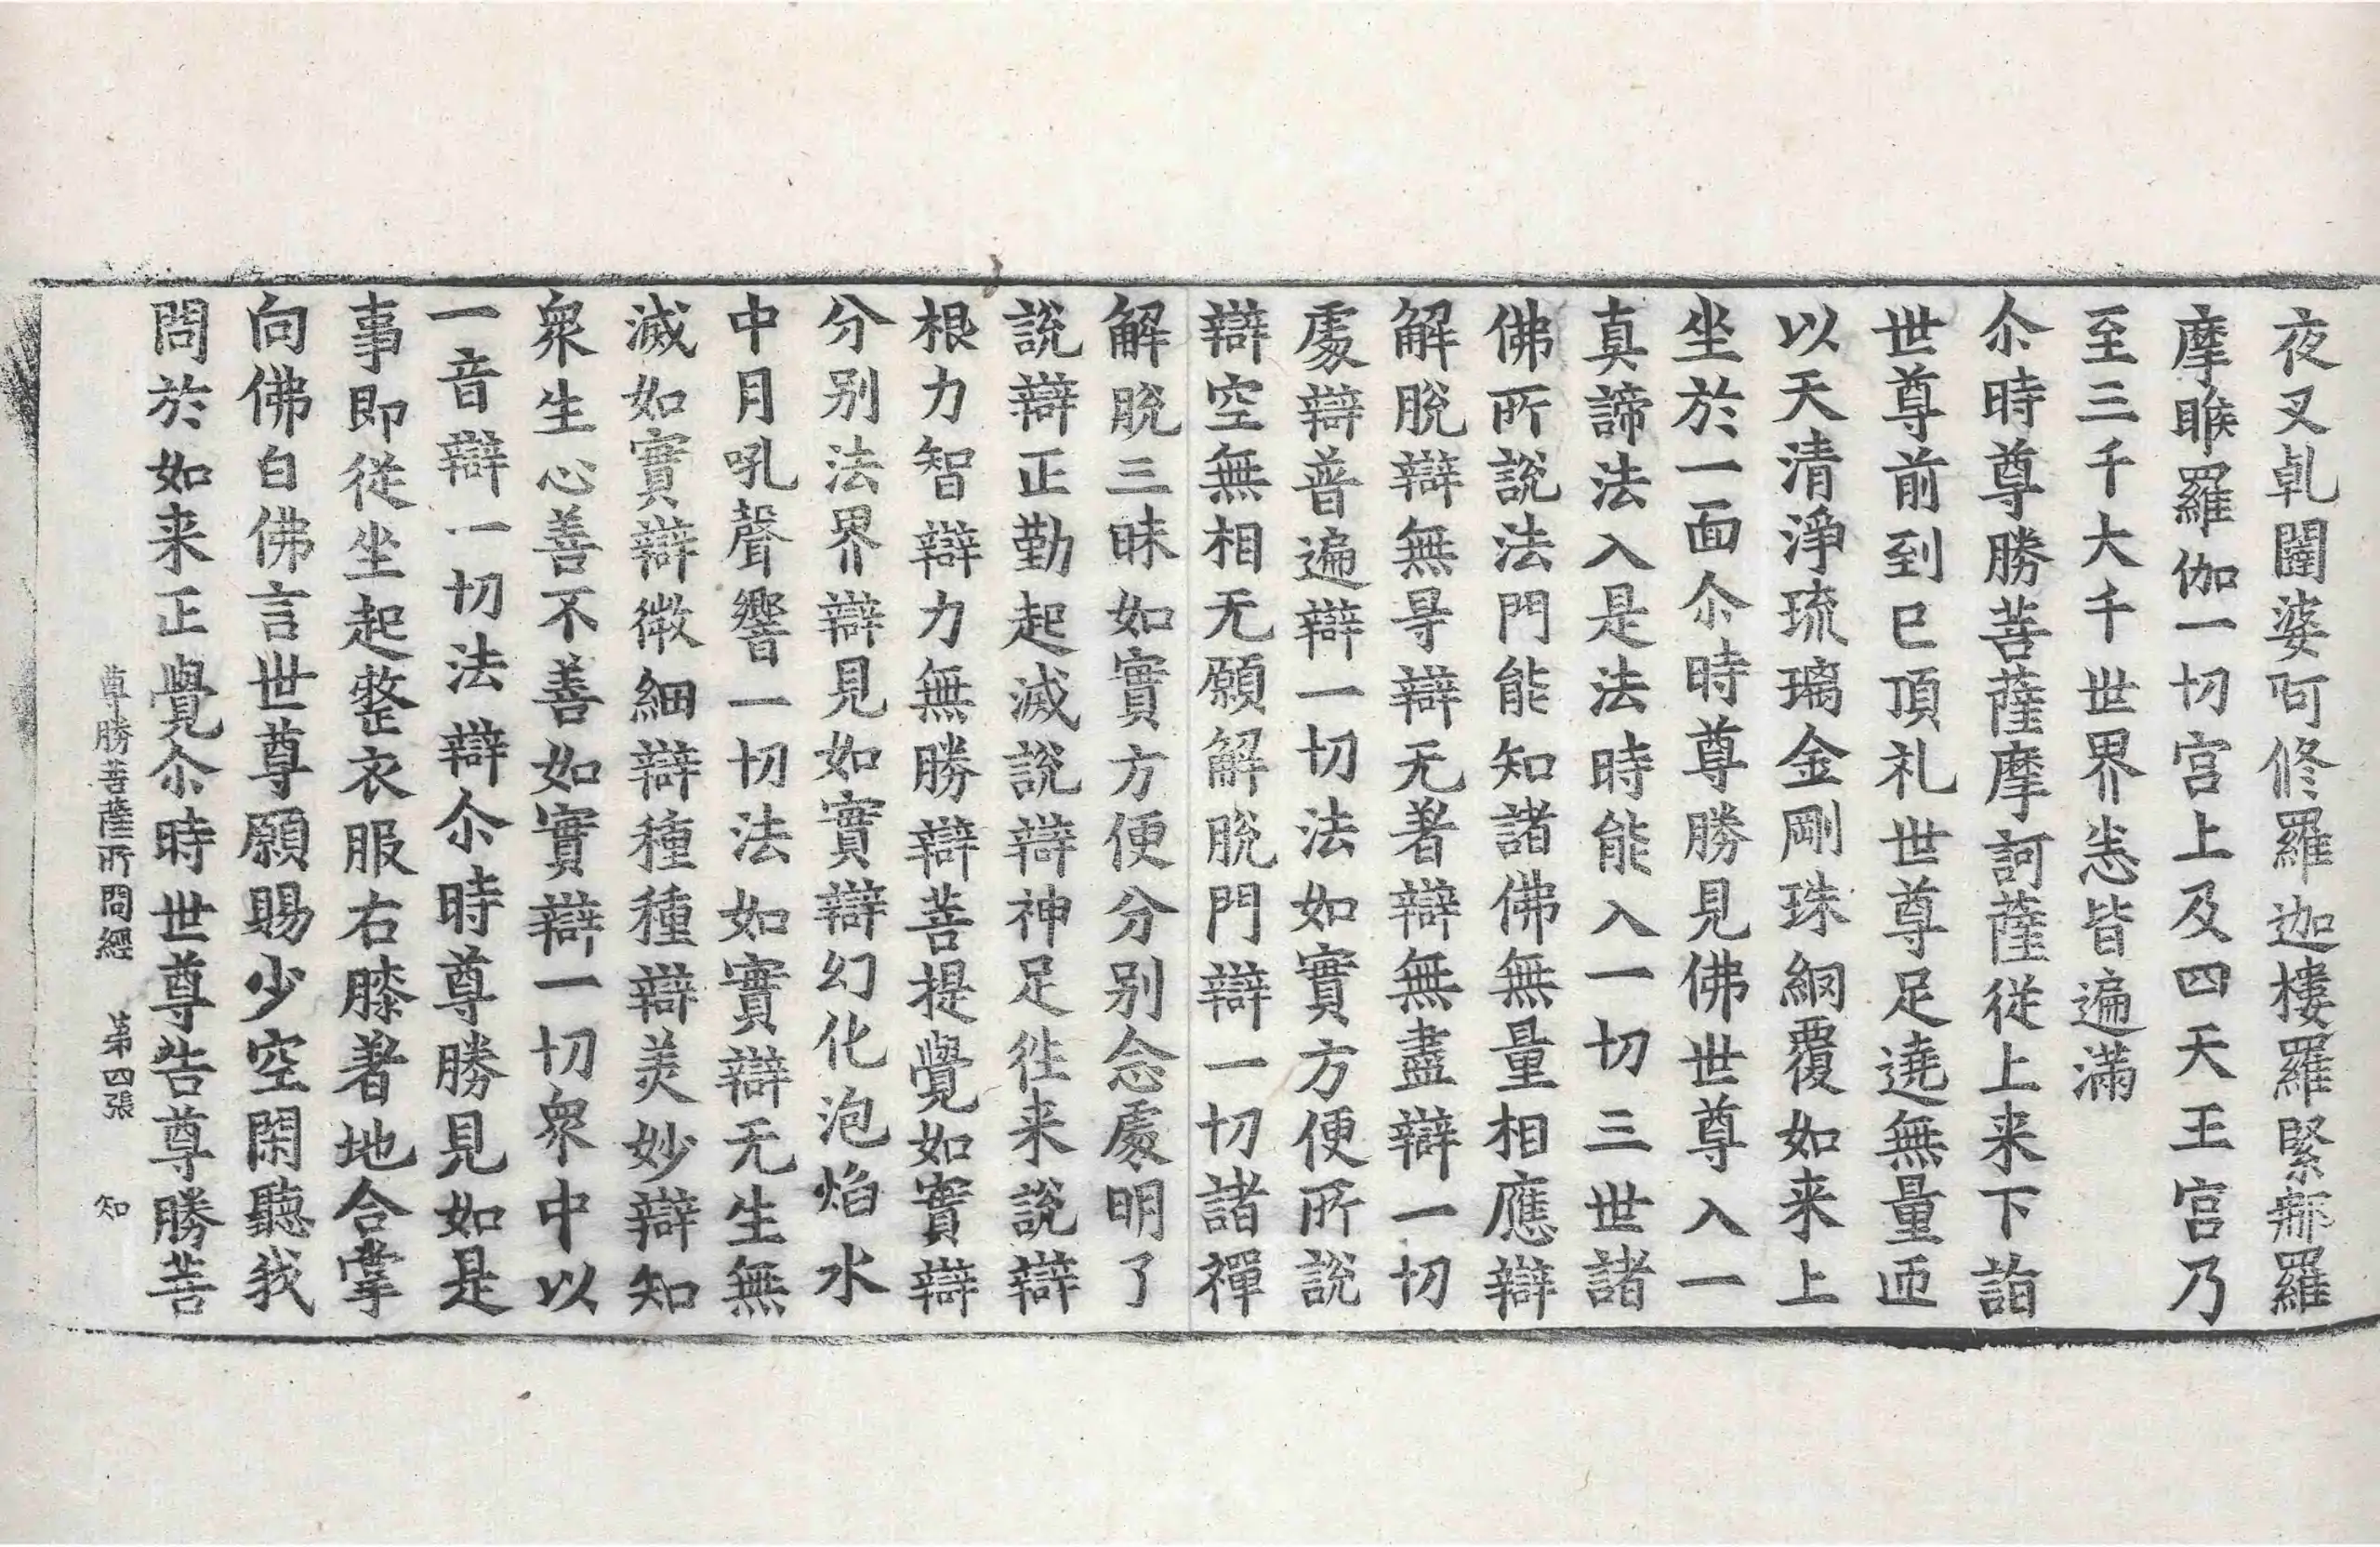 夜叉乹闥婆阿修羅迦樓羅緊𨚗羅
摩睺羅伽一切宫上及四天王宫乃
至三千大千世界悉皆遍滿
尒時尊勝菩薩摩訶薩從上来下詣
世尊前到已頂礼世尊足遶無量迊
以天清淨琉璃金剛珠網覆如来上
坐於一面尒時尊勝見佛世尊入一
真諦法入是法時能入一切三世諸
佛所說法門能知諸佛無量相應辯
解脫辯無㝵辯无著辯無盡辯一切
處辯普遍辯一切法如實方便所說
辯空無相无願解脫門辯一切諸禪
解脫三昧如實方便分别念處明了
說辯正勤起滅說辯神足往来說辯
根力智辯力無勝辯菩提覺如實辯
分别法界辯見如實辯幻化泡焰水
中月吼聲響一切法如實辯无生無
滅如實辯微細辯種種辯美妙辯知
衆生心善不善如實辯一切衆中以
一音辯一切法辯尒時尊勝見如是
事即從坐起整衣服右膝著地合掌
向佛白佛言世尊願賜少空閑聽我
問於如来正覺尒時世尊告尊勝菩
尊勝菩薩所問經 第四張 知